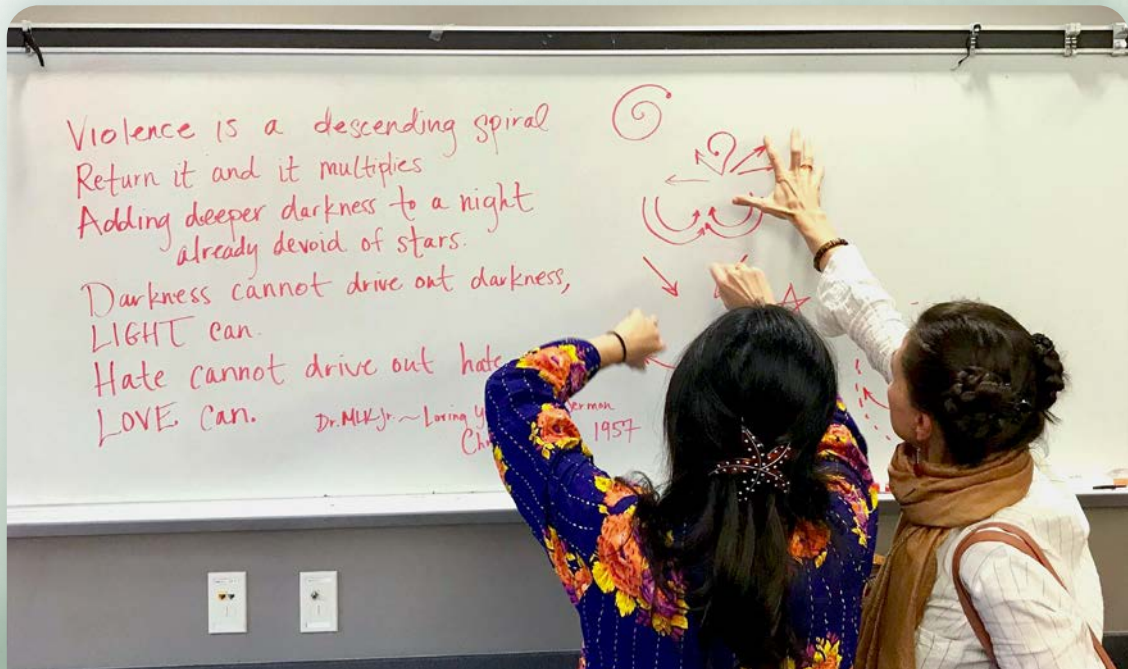 Violence is a descending spiral
Return it and it multiplies
Adding deeper darkness to a night
already devoid of stars.
Darkness cannot drive out darkness,
LIGHT can.
Hate cannot drive out hate
LOVE can.
Dr. MLK Jr. ~ Loving
1957